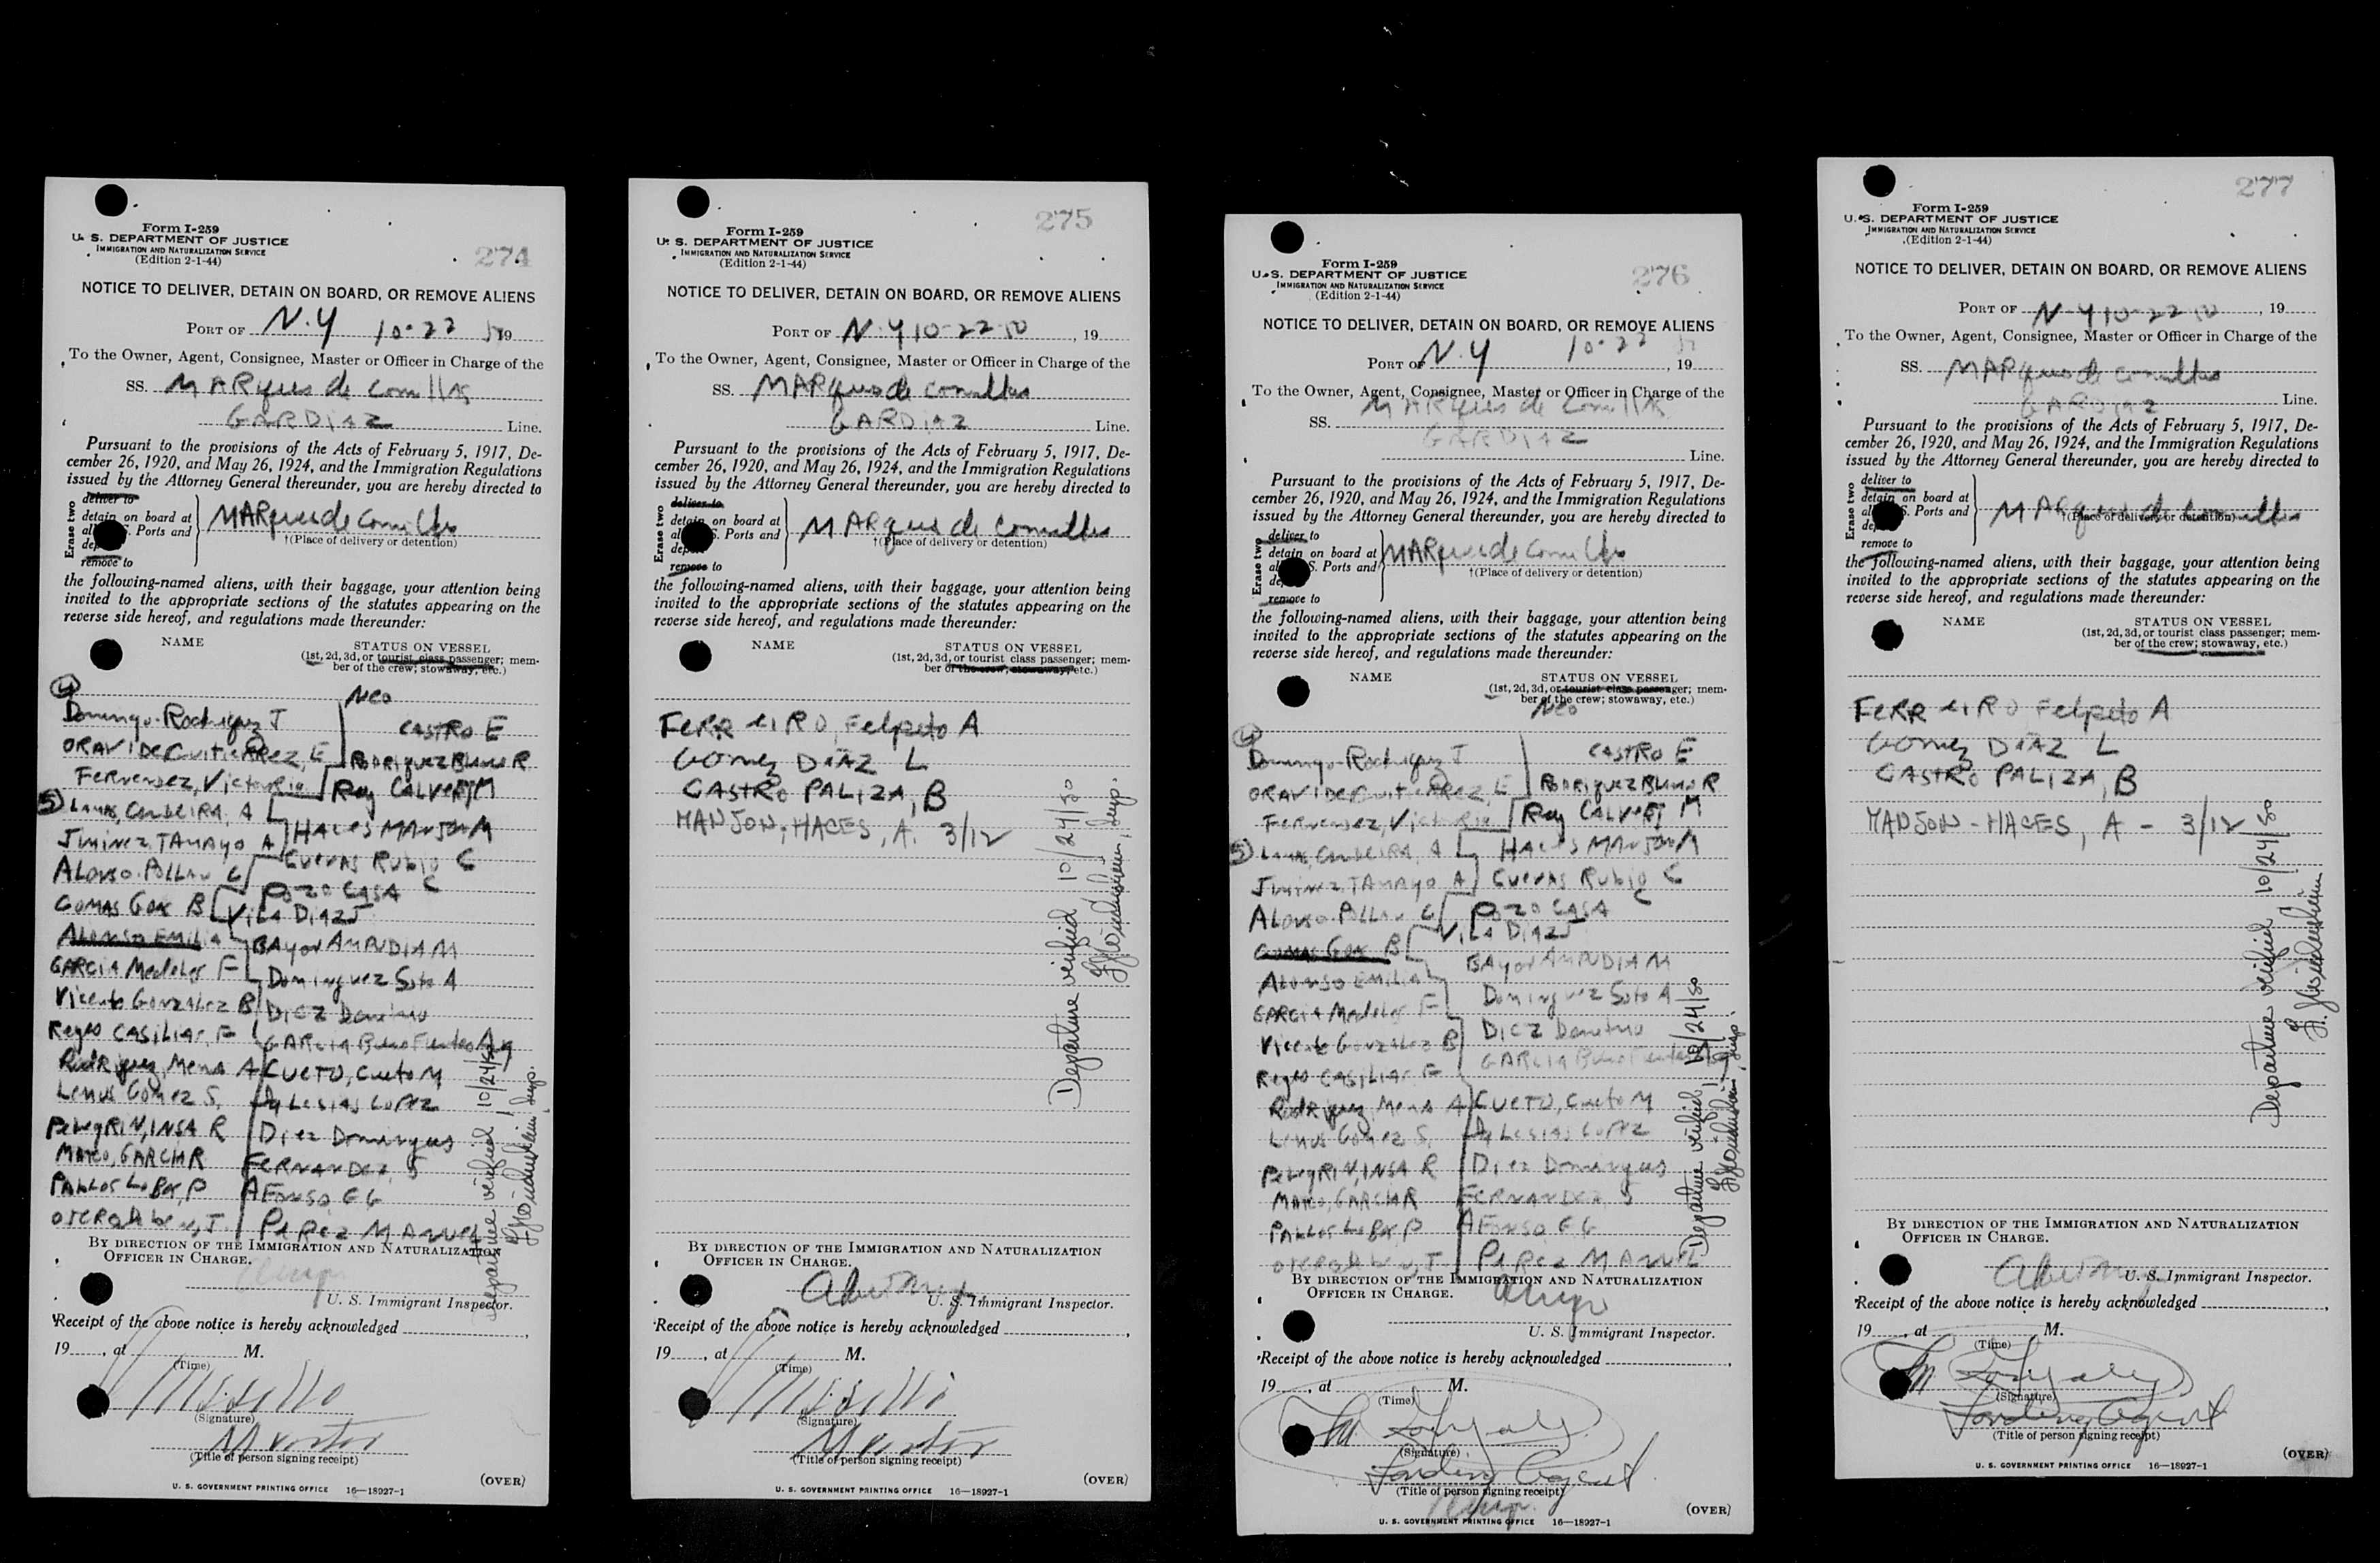 274
Form I-259
U. S. DEPARTMENT OF JUSTICE
IMMIGRATION AND NATURALIZATION SERVICE
(Edition 2-1-44)
NOTICE TO DELIVER, DETAIN ON BOARD, OR REMOVE ALIENS
PORT OF N.Y 10-22 19
To the Owner, Agent, Consignee, Master or Officer in Charge of the
SS. MARques de Comillas
GARDIAZ Line.
Pursuant to the provisions of the Acts of February 5, 1917, De-
cember 26, 1920, and May 26, 1924, and the Immigration Regulations
issued by the Attorney General thereunder, you are hereby directed to
Erase two
deliver to
detain on board at
S. Ports and
remove to
MARques de Comillas
†(Place of delivery or detention)
the following-named aliens, with their baggage, your attention being
invited to the appropriate sections of the statutes appearing on the
reverse side hereof, and regulations made thereunder:
NAME STATUS ON VESSEL
(1st, 2d, 3d, or tourist class passenger; mem-
ber of the crew; stowaway, etc.)
4 Neo
Domingo-Rodriguez J CASTRO E
Gutierrez, E RODRiguez Blanco R
Fernendez, Victorio Rey CALVERT M
5 A HACES MANJON M
TAMAYO A CUEVAS RUBIO C
ALONSO POLLAN C POZO CASA C
COMAS B VILA DIAZ J
ALONSO EMILIA BAyon AMPUDIA M
GARCIA F Dominguez Soto A
Vicente Gonzalez B DIEZ
Reyes CASILIAS, F GARCIA
RodRiguez, Mena A CUETO, Cueto M
Lemus Gomez S. IgLESIAS LOPEZ
PelegRIN, INSA R Diez Domingues
GARCIA R FERNANDEZ, S
P AFONSO E G
J. PEREZ MANUEL
Departure verified 10/24/50
Insp.
BY DIRECTION OF THE IMMIGRATION AND NATURALIZATION
OFFICER IN CHARGE.
U. S. Immigrant Inspector.
Receipt of the above notice is hereby acknowledged
19, at M.
(Time)
(Signature)
(Title of person signing receipt)
(OVER)
U. S. GOVERNMENT PRINTING OFFICE 16—18927-1
275
Form I-259
U. S. DEPARTMENT OF JUSTICE
IMMIGRATION AND NATURALIZATION SERVICE
(Edition 2-1-44)
NOTICE TO DELIVER, DETAIN ON BOARD, OR REMOVE ALIENS
PORT OF N.Y 10-22-50, 19
To the Owner, Agent, Consignee, Master or Officer in Charge of the
SS. MARques de Comillas
GARDIAZ Line.
Pursuant to the provisions of the Acts of February 5, 1917, De-
cember 26, 1920, and May 26, 1924, and the Immigration Regulations
issued by the Attorney General thereunder, you are hereby directed to
Erase two
deliver to
detain on board at
S. Ports and
remove to
MARques de Comillas
†(Place of delivery or detention)
the following-named aliens, with their baggage, your attention being
invited to the appropriate sections of the statutes appearing on the
reverse side hereof, and regulations made thereunder:
NAME STATUS ON VESSEL
(1st, 2d, 3d, or tourist class passenger; mem-
ber of the crew; stowaway, etc.)
FERREIRO, Felpeto A
Gomez DIAZ L
CASTRO PALIZA, B
MANJON-HACES, A. 3/12
Departure verified 10/24/50
Insp.
BY DIRECTION OF THE IMMIGRATION AND NATURALIZATION
OFFICER IN CHARGE.
U. S. Immigrant Inspector.
Receipt of the above notice is hereby acknowledged
19, at M.
(Time)
(Signature)
(Title of person signing receipt)
(OVER)
U. S. GOVERNMENT PRINTING OFFICE 16—18927-1
276
Form I-259
U. S. DEPARTMENT OF JUSTICE
IMMIGRATION AND NATURALIZATION SERVICE
(Edition 2-1-44)
NOTICE TO DELIVER, DETAIN ON BOARD, OR REMOVE ALIENS
PORT OF N.Y 10-22, 19
To the Owner, Agent, Consignee, Master or Officer in Charge of the
SS. MARques de Comillas
GARDIAZ
Line.
Pursuant to the provisions of the Acts of February 5, 1917, De-
cember 26, 1920, and May 26, 1924, and the Immigration Regulations
issued by the Attorney General thereunder, you are hereby directed to
Erase two
deliver to
detain on board at
S. Ports and
remove to
MARques de Comillas
†(Place of delivery or detention)
the following-named aliens, with their baggage, your attention being
invited to the appropriate sections of the statutes appearing on the
reverse side hereof, and regulations made thereunder:
NAME STATUS ON VESSEL
(1st, 2d, 3d, or tourist class passenger; mem-
ber of the crew; stowaway, etc.)
Neo
4
Domingo-Rodriguez J CASTRO E
E RODRiguez Blanco R
Fernendez, Victorio Rey CALVERT M
5 A HACES MANJON M
TAMAYO A CUEVAS RUBIO C
ALONSO POLLAN C POZO CASA C
COMAS B VILA DIAZ J
ALONSO EMILIA BAyon AMPUDIA M
GARCIA F Dominguez Soto A
Vicente Gonzalez B DIEZ
Reyes CASILIAS F GARCIA
RodRiguez, Mena A CUETO, Cueto M
Lemus Gomez S. IgLESIAS LOPEZ
PelegRIN, INSA R Diez Domingues
GARCIA R FERNANDEZ, S
P AFONSO E G
J. PEREZ MANUEL
Departure verified, 10/24/50
Insp.
BY DIRECTION OF THE IMMIGRATION AND NATURALIZATION
OFFICER IN CHARGE.
U. S. Immigrant Inspector.
Receipt of the above notice is hereby acknowledged
19, at M.
(Time)
(Signature)
Landing Agent
(Title of person signing receipt)
(OVER)
U. S. GOVERNMENT PRINTING OFFICE 16—18927-1
277
Form I-259
U. S. DEPARTMENT OF JUSTICE
IMMIGRATION AND NATURALIZATION SERVICE
(Edition 2-1-44)
NOTICE TO DELIVER, DETAIN ON BOARD, OR REMOVE ALIENS
PORT OF N-Y 10-22 50, 19
To the Owner, Agent, Consignee, Master or Officer in Charge of the
SS. MARques de Comillas
GARDIAZ Line.
Pursuant to the provisions of the Acts of February 5, 1917, De-
cember 26, 1920, and May 26, 1924, and the Immigration Regulations
issued by the Attorney General thereunder, you are hereby directed to
Erase two
deliver to
detain on board at
S. Ports and
remove to
MARques de Comillas
†(Place of delivery or detention)
the following-named aliens, with their baggage, your attention being
invited to the appropriate sections of the statutes appearing on the
reverse side hereof, and regulations made thereunder:
NAME STATUS ON VESSEL
(1st, 2d, 3d, or tourist class passenger; mem-
ber of the crew; stowaway, etc.)
FERREIRO Felpeto A
Gomez DIAZ L
CASTRO PALIZA, B
MANJON-HACES, A - 3/12
Departure verified 10/24/50
BY DIRECTION OF THE IMMIGRATION AND NATURALIZATION
OFFICER IN CHARGE.
U. S. Immigrant Inspector.
Receipt of the above notice is hereby acknowledged
19, at M.
(Time)
(Signature)
Landing Agent
(Title of person signing receipt)
(OVER)
U. S. GOVERNMENT PRINTING OFFICE 16—18927-1